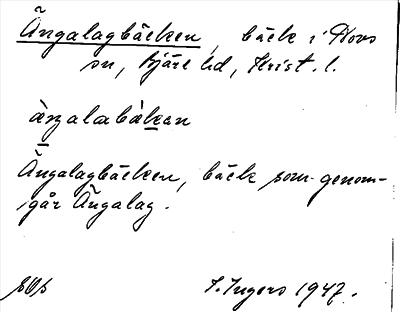 Ängalagbäcken, bäck i Hovs
sn, Bjäre hd, Krist. l.
àŋalabàkan
Ängalagbäcken, bäck som genom-
går Ängalag.
I. Ingers 1947.